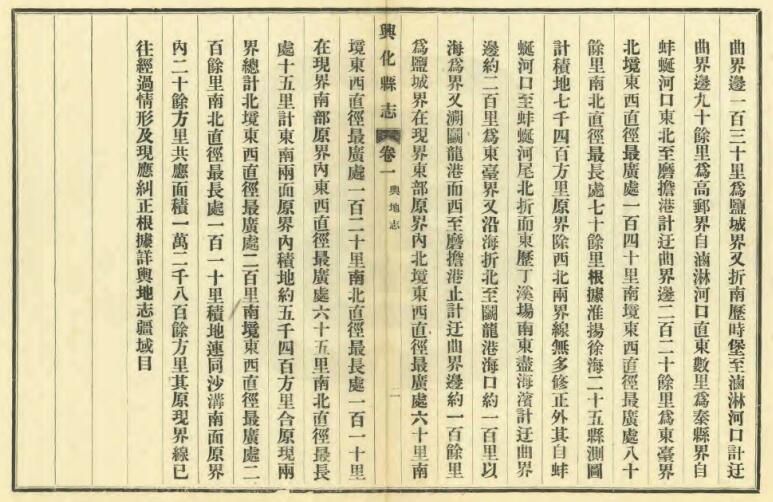 曲界邊一百三十里爲鹽城界又折南歷時堡至滷淋河口計迂
曲界邊九十餘里爲高郵界自滷淋河口直東數里爲泰縣界自
蚌蜒河口東北至磨擔港計迂曲界邊二百二十餘里爲東臺界
北境東西直徑最廣處一百四十里南境東西直徑最廣處八十
餘里南北直徑最長處七十餘里根據淮揚徐海二十五縣測圖
計積地七千四百方里原界除西北兩界線無多修正外其自蚌
蜒河口至蚌蜒河尾北折而東歷丁溪場南東盡海濱計迂曲界
邊約二百里爲東臺界又沿海折北至鬭龍港海口約一百里以
海爲界又溯鬭龍港而西至磨擔港止計迂曲界邊約一百餘里
爲鹽城界在現界東部原界內北境東西直徑最廣處六十里南
興化縣志 卷一 輿地志 一
境東西直徑最廣處一百二十里南北直徑最長處一百一十里
在現界南部原界內東西直徑最廣處六十五里南北直徑最長
處十五里計東南兩面原界內積地約五千四百方里合原現兩
界總計北境東西直徑最廣處二百里南境東西直徑最廣處二
百餘里南北直徑最長處一百一十里積地連同沙溝南面原界
內二十餘方里共應面積一萬二千八百餘方里其原現界線已
往經過情形及現應糾正根據詳輿地志疆域目